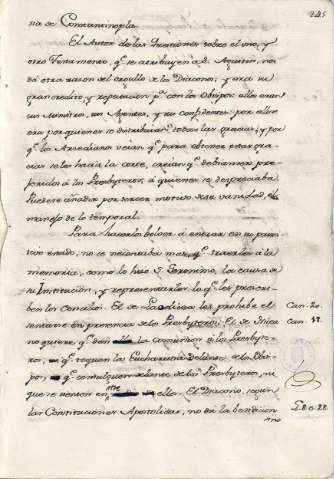 243
sia de Constantinopla.
El Autor de las Questiones sobre el viejo, y
otro Testamento, qe. se atribuyen a S. Agustin, no
da otra razon del orgullo de los Diaconos; y era su
gran credito, y reputacion pa. con los Obispos: ellos eran
sus Ministros, sus Agentes, y sus confidentes: por ellos
era por quienes se distribuian todas las gracias; y por
qe. los Arzedianos veian qe. para obtener estas gra-
cias se les hacia la corte, creian qe. debian ser pre-
feridos á los Presbyteros, á quienes se despreciaba
Puedese añadir por tercer motivo de su vanidad, el
manejo de lo temporal.
Para hacerlos bolver á entrar en su primi-
tivo estado, no se necesitaba mas qe. traerlos á la
memoria, como lo hizo S. Geronimo, la causa de
su Institucion, y representarles lo qe. les prescri-
ben los Concilios. El de Laodicea les prohibe el
sentarse en presencia de los Presbyteros: El de Nicea
no quiere qe. den la comunion á los Presbyte-
ros, qe. tomen la Eucharistia delante de los Obis-
pos, qe. comulguen delante de los Presbyteros, ni
que se sienten entre ellos. El Diacono, segun
las Constituciones Apostolicas, no da la bendicion
Can. 20.
Can. 18.
L. 8. c. 28.